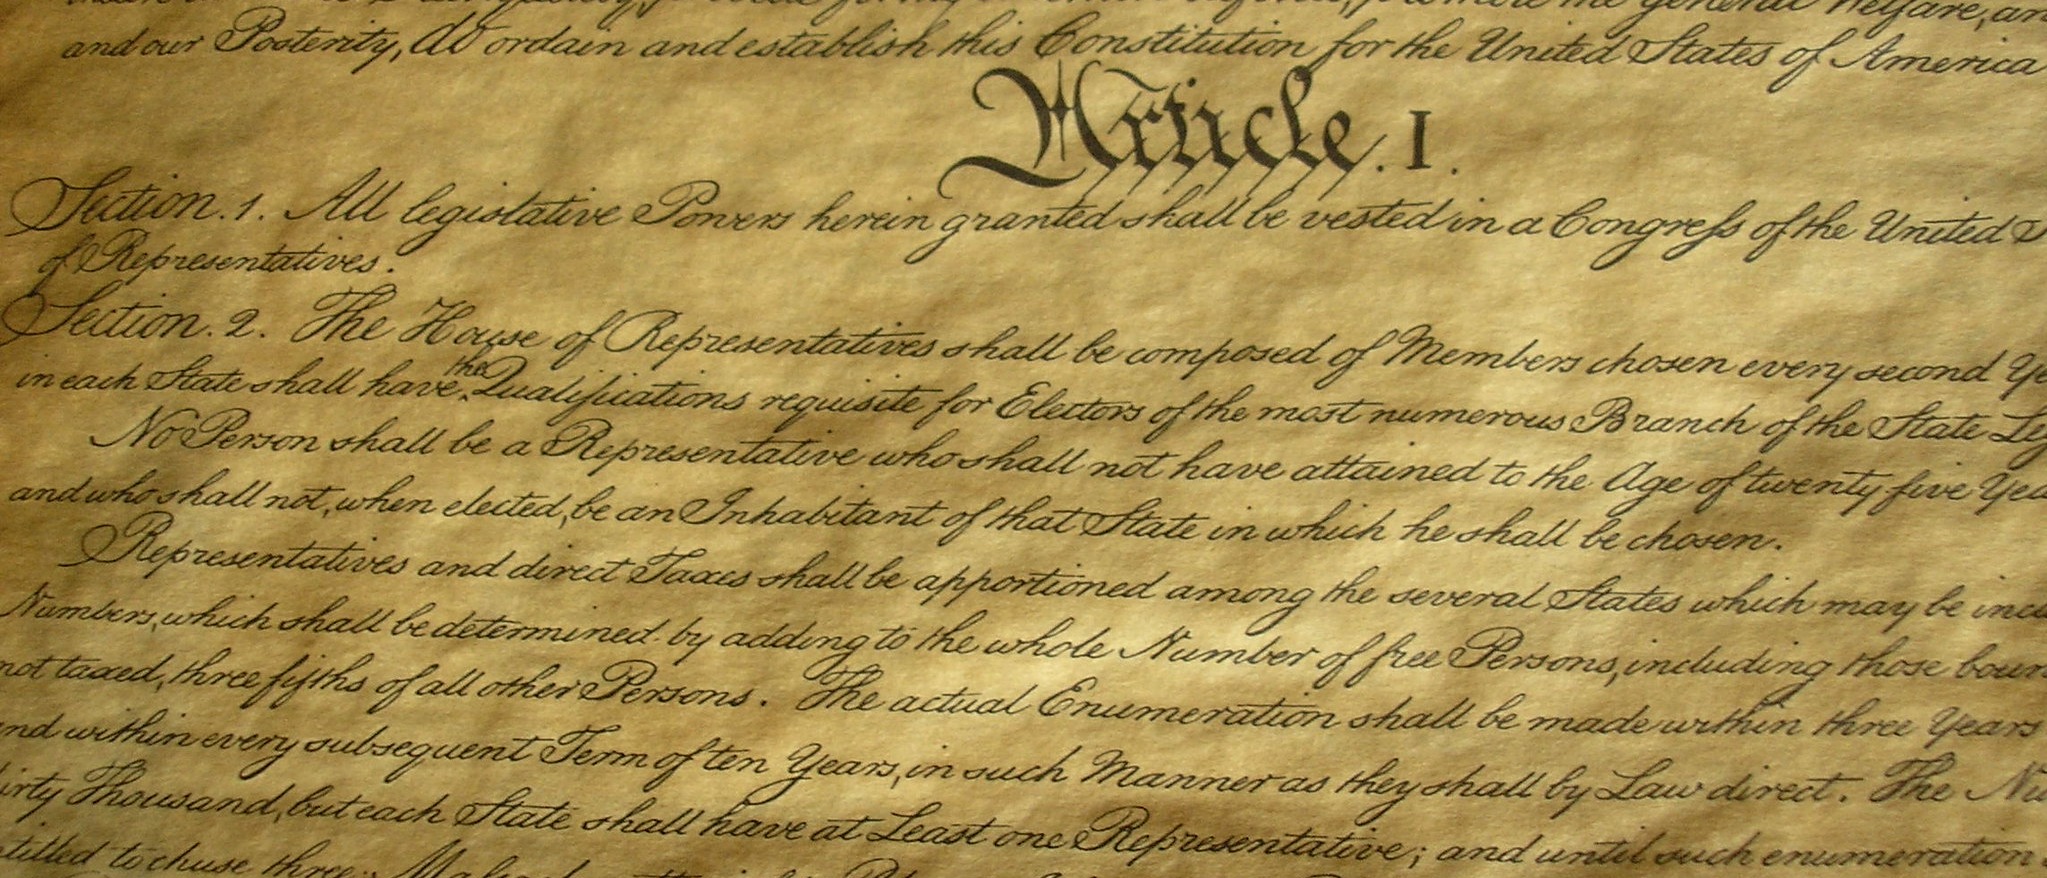 the general Welfare, an
and our Posterity, do ordain and establish this Constitution for the United States of America
Article. I.
Section. 1. All legislative Powers herein granted shall be vested in a Congreſs of the United S
of Representatives.
Section. 2. The House of Representatives shall be composed of Members chosen every second Ye
in each State shall have the Qualifications requisite for Electors of the most numerous Branch of the State Leg
No Person shall be a Representative who shall not have attained to the Age of twenty five Yea
and who shall not, when elected, be an Inhabitant of that State in which he shall be chosen.
Representatives and direct Taxes shall be apportioned among the several States which may be inclu
Numbers, which shall be determined by adding to the whole Number of free Persons, including those boun
not taxed, three fifths of all other Persons. The actual Enumeration shall be made within three Years
and within every subsequent Term of ten Years, in such Manner as they shall by Law direct. The Nu
irty Thousand, but each State shall have at Least one Representative; and until such enumeration
titled to chuse three,